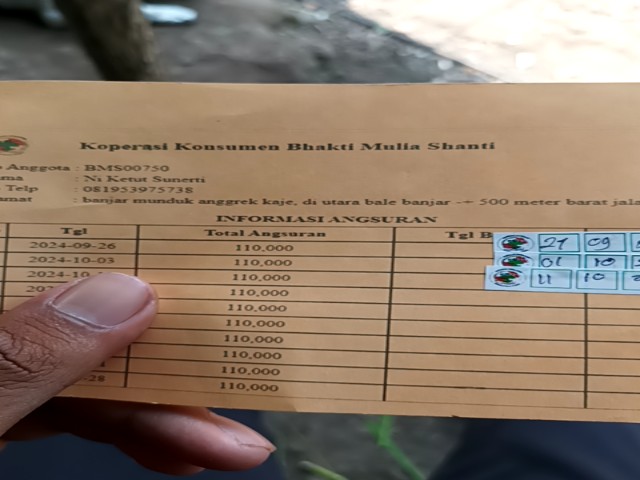 Koperasi Konsumen Bhakti Mulia Shanti
Anggota : BMS00750
ama : Ni Ketut Sunerti
Telp : 081953975738
amat : banjar munduk anggrek kaje, di utara bale banjar -+ 500 meter barat jala
INFORMASI ANGSURAN
Tgl Total Angsuran Tgl B
2024-09-26 110,000 27 09
2024-10-03 110,000 01 10
2024-10- 110,000 11 10
202 110,000
110,000
110,000
110,000
110,000
110,000
-28 110,000